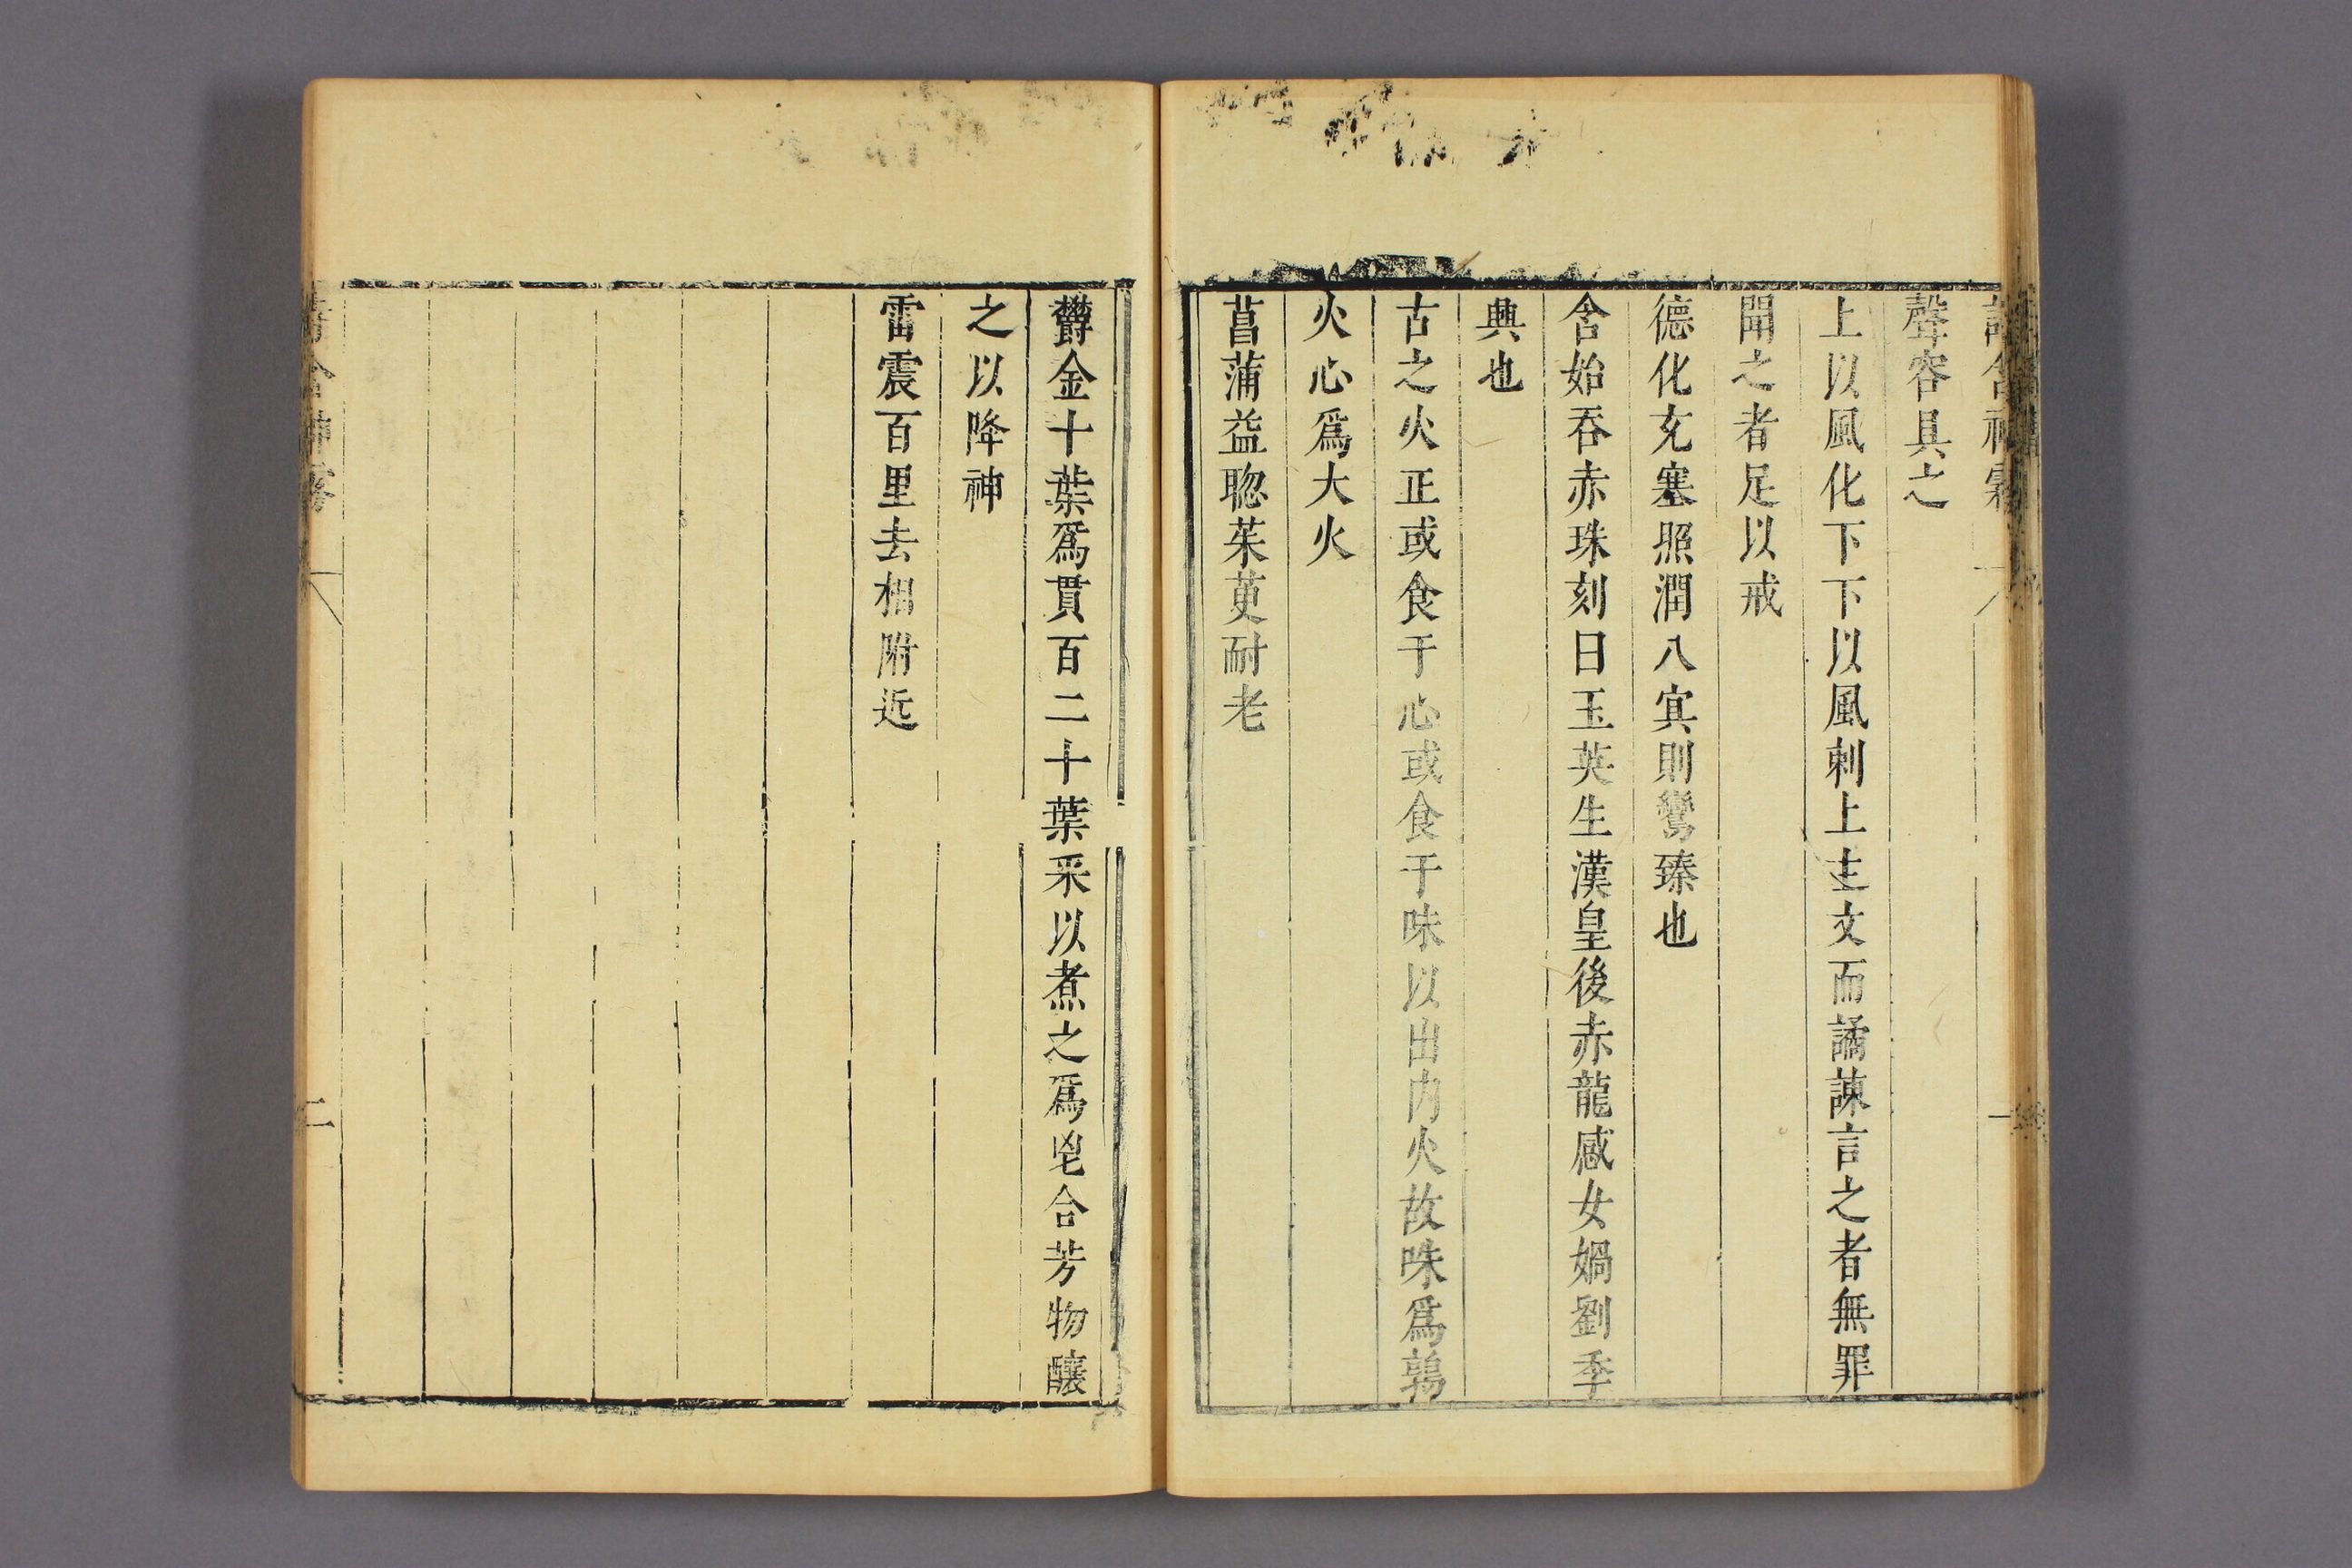 詩含神霧
一
聲容具之
上以風化下下以風刺上主文而譎諫言之者無罪
聞之者足以戒
德化充塞照潤八㝠則鸞臻也
含始吞赤珠刻曰玉英生漢皇後赤龍感女媧劉季
興也
古之火正或食于心或食于味以出內火故咮爲鶉
火心爲大火
菖蒲益聰茱萸耐老
欝金十葉爲貫百二十葉采以煮之爲鬯合芳物釀
之以降神
雷震百里去相附近
詩含神霧
二